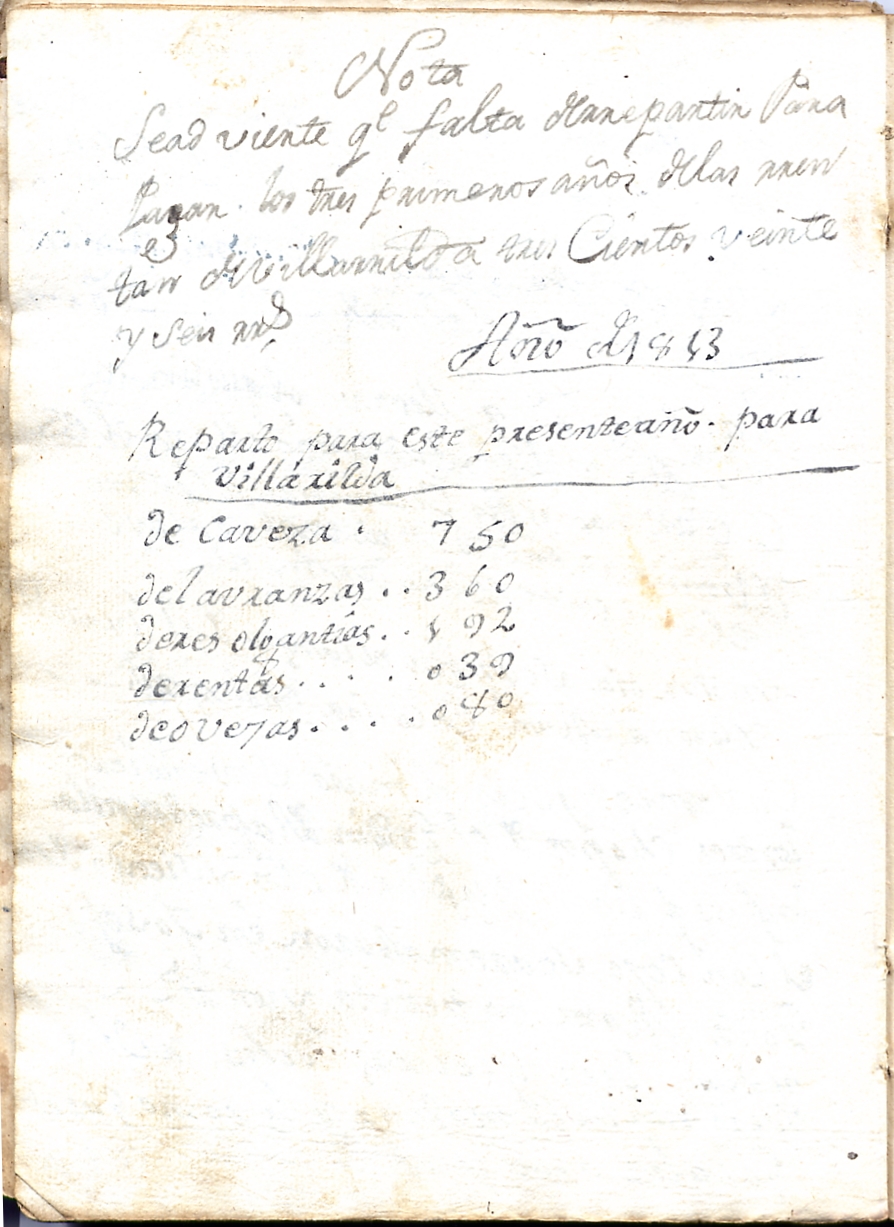 Nota
Seadvierte qe falta derrepartir Para
Pagar. los tres primeros años. delas rren
tas deVillarrilda tres Cientos veinte
y Seis rrs
Año de 1813
Reparto para este presenteaño. para
Villarilda
de Caveza . 750
delavranzas . . 360
deres olgantias . . 192
derentas . . . . 039
deovejas . . . . 080